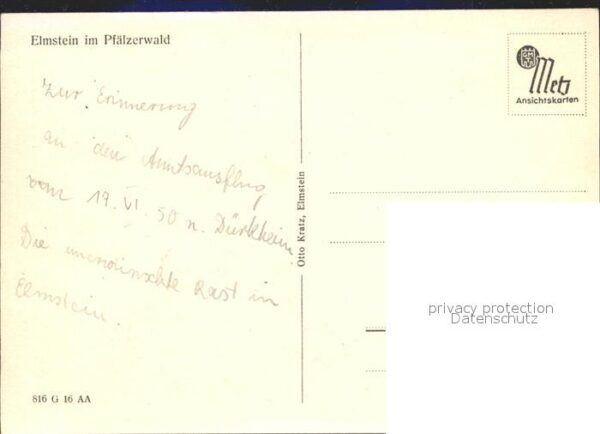 Elmstein im Pfälzerwald
Zur Erinnerung
an den Amtsausflug
vom 17. VI. 50 n. Dürkheim.
Die unerwünschte Rast in
Elmstein.
816 G 16 AA
Otto Kratz, Elmstein
Metz
Ansichtskarten
privacy protection
Datenschutz